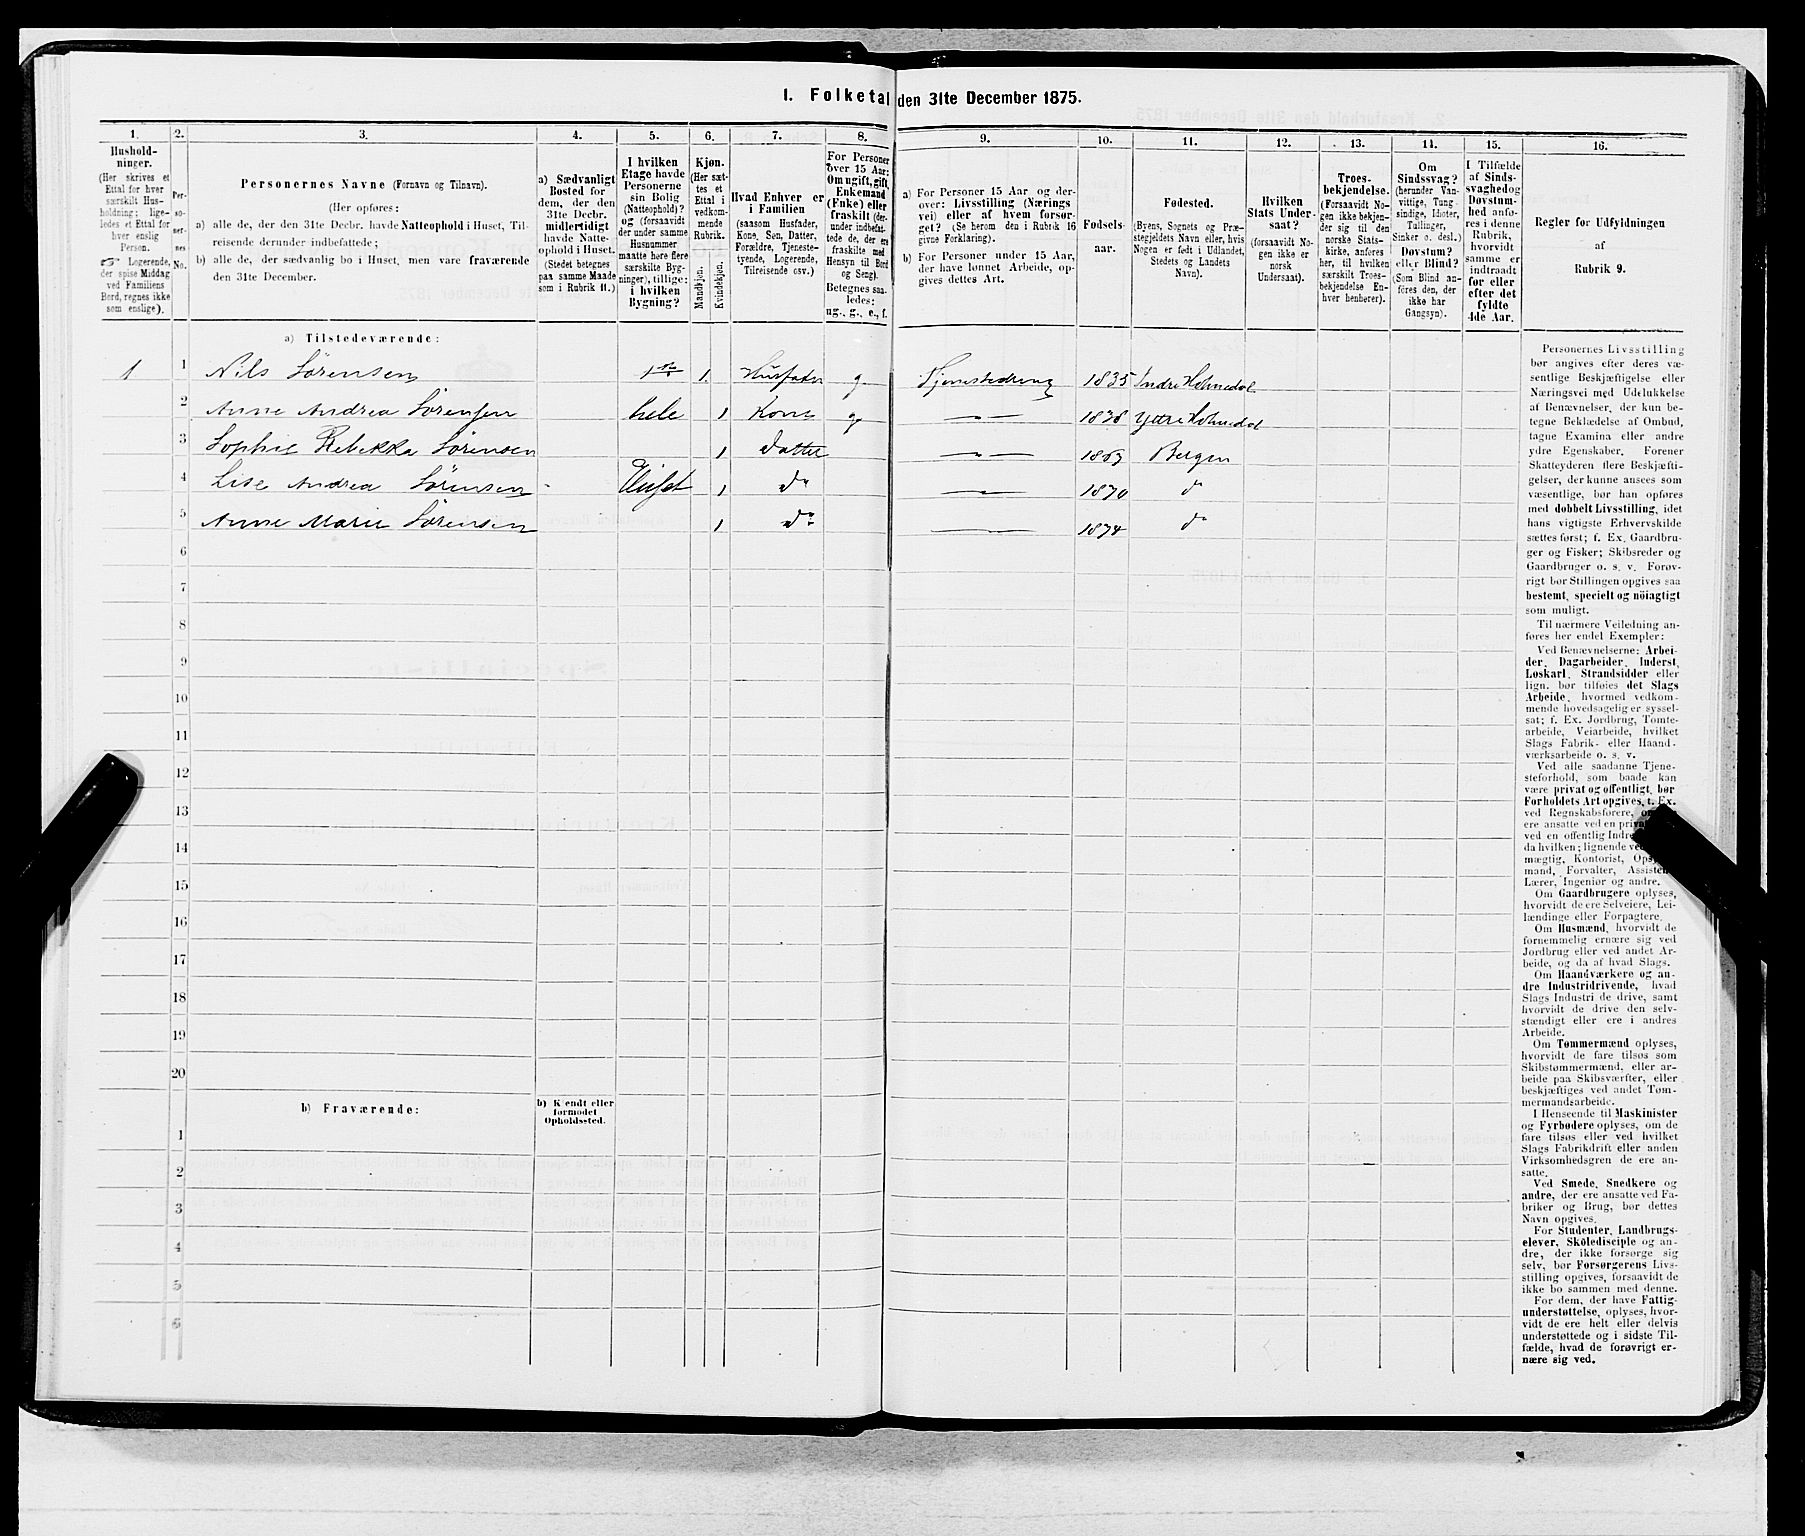 I. Folketal den 31te December 1875.
1. 2. 3. 4. 5. 6. 7. 8. 9. 10. 11. 12. 13. 14. 15. 16.
Hushold-
ninger.
(Her skrives et
Ettal for hver
særskilt Hus-
holdning; lige-
ledes et Ettal for
hver enslig
Person.
☞ Logerende,
der spise Middag
ved Familiens
Bord, regnes ikke
som enslige).
Per-
so-
ner-
nes
No.
Personernes Navne (Fornavn og Tilnavn).
(Her opføres:
a) alle de, der den 31te Decbr. havde Natteophold i Huset, Til-
reisende derunder indbefattede;
b) alle de, der sædvanlig bo i Huset, men vare fraværende
den 31te December.
a) Sædvanligt
Bosted for
dem, der den
31te Decbr.
midlertidigt
havde Natte-
ophold i Huset.
(Stedet betegnes
paa samme Maade
som i Rubrik 11.)
I hvilken
Etage havde
Personerne
sin Bolig
(Natteophold)?
og (forsaavidt
der under samme
Husnummer
maatte høre flere
særskilte Byg-
ninger), tillige:
i hvilken
Bygning?
Kjøn.
(Her sæt-
tes et
Ettal i
vedkom-
mende
Rubrik.
Mandkjøn.
Kvindekjøn.
Hvad Enhver er
i Familien
(saasom Husfader,
Kone, Søn, Datter,
Forældre, Tjeneste-
tyende, Logerende,
Tilreisende osv.)
For Personer
over 15 Aar:
Om ugift, gift,
Enkemand
(Enke) eller
fraskilt (der-
under indbefat-
tede de, der ere
fraskilte med
Hensyn til Bord
og Seng).
Betegnes saa-
ledes:
ug., g., e., f.
a) For Personer 15 Aar og der-
over: Livsstilling (Nærings
vei) eller af hvem forsør-
get? (Se herom den i Rubrik 16
givne Forklaring).
b) For Personer under 15 Aar,
der have lønnet Arbeide, op-
gives dettes Art.
Fødsels-
aar.
Fødested.
(Byens, Sognets og Præ-
stegjeldets Navn eller, hvis
Nogen er født i Udlandet,
Stedets og Landets
Navn).
Hvilken
Stats Under-
saat?
(forsaavidt No-
gen ikke er
norsk
Undersaat).
Troes-
bekjendelse.
(Forsaavidt No-
gen ikke bekjen-
der sig til den
norske Stats-
kirke, anføres
her, til hvilken
særskilt Troes-
bekjendelse En-
hver henhører).
Om
Sindssvag?
(herunder Van-
vittige, Tung
sindige, Idioter,
Tullinger,
Sinker o. desl.)
Døvstum?
eller Blind?
(Som Blind an-
føres den, der
ikke har
Gangsyn).
I Tilfælde
af Sinds-
svaghed og
Døvstum-
hed anfø-
res i denne
Rubrik,
hvorvidt
samme er
indtraadt
før eller
efter det
fyldte
4de Aar.
Regler for Udfyldningen
af
Rubrik 9.
a) Tilstedeværende:
1 1 Nils Sörensen 1 1. Husfader g. 1835 Indre Holmedal
2 Anne Andrea Sörensen hele 1 Kone g — „ — 1838 Yttre Holmedal
3 Sophie Rebekka Sörensen 1 datter — „ — Bergen
4 Lise Andrea Sörensen 1 do — „ — 1870 do
5 Anne Marie Sörensen 1 do 1874 do
6
7
8
9
10
11
12
13
14
15
16
17
18
19
20
b) Fraværende:
b) Kjendt eller
formodet
Opholdssted.
1
2
3
4
5
6
Personernes Livsstilling
bør angives efter deres væ-
sentlige Beskjæftigelse eller
Næringsvei med Udelukkelse
af Benævnelser, der kun be-
tegne Beklædelse af Ombud,
tagne Examina eller andre
ydre Egenskaber. Forener
Skatteyderen flere Beskjæfti-
gelser, der kunne ansees som
væsentlige, bør han opføres
med dobbelt Livsstilling, idet
hans vigtigste Erhvervskilde
sættes først; f. Ex. Gaardbru-
ger og Fisker; Skibsreder og
Gaardbruger o. s. v. Forøv-
rigt bør Stillingen opgives saa
bestemt, specielt og nöiagtigt
som muligt.
Til nærmere Veiledning an-
føres her endel Exempler:
Ved Benævnelserne: Arbei-
der, Dagarbeider, Inderst,
Løskarl, Strandsidder eller
lign. bør tilføies det Slags
Arbeide, hvormed vedkom-
mende hovedsagelig er syssel-
sat; f. Ex. Jordbrug, Tomte-
arbeide, Veiarbeide, hvilket
Slags Fabrik- eller Haand-
værksarbeide o. s. v.
Ved alle saadanne Tjene-
steforhold, som baade kan
være privat og offentligt, bør
Forholdets Art opgives, t. Ex.
ved Regnskabsførere, om
ere ansatte ved en privat
ved en offentlig Indre
da hvilken; lignende ved
mægtig, Kontorist, Ops
mand, Forvalter, Assisten
Lærer, Ingeniør og andre.
Om Gaardbrugere oplyses,
hvorvidt de ere Selveiere, Lei-
lændinge eller Forpagtere.
Om Husmænd, hvorvidt de
fornemmelig ernære sig ved
Jordbrug eller ved andet Ar-
beide, og da af hvad Slags.
Om Haandværkere og an-
dre Industridrivende, hvad
Slags Industri de drive, samt
hvorvidt de drive den selv-
stændigt eller ere i andres
Arbeide.
Om Tømmermænd oplyses,
hvorvidt de fare tilsøs som
Skibstømmermænd, eller ar-
beide paa Skibsværfter, eller
beskjæftiges ved andet Tøm-
mermandsarbeide.
I Henseende til Maskinister
og Fyrbødere oplyses, om de
fare tilsøs eller ved hvilket
Slags Fabrikdrift eller anden
Virksomhedsgren de ere an-
satte.
Ved Smede, Snedkere og
andre, der ere ansatte ved Fa-
briker og Brug, bør dettes
Navn opgives.
For Studenter, Landbrugs-
elever, Skoledisciple og an-
dre, der ikke forsørge sig
selv, bør Forsørgerens Livs-
stilling opgives, forsaavidt de
ikke bo sammen med denne.
For dem, der have Fattig-
understøttelse, oplyses, hvor-
vidt de ere helt eller delvis
understøttede og i sidste Til-
fælde, hvad de forøvrigt er-
nære sig ved.